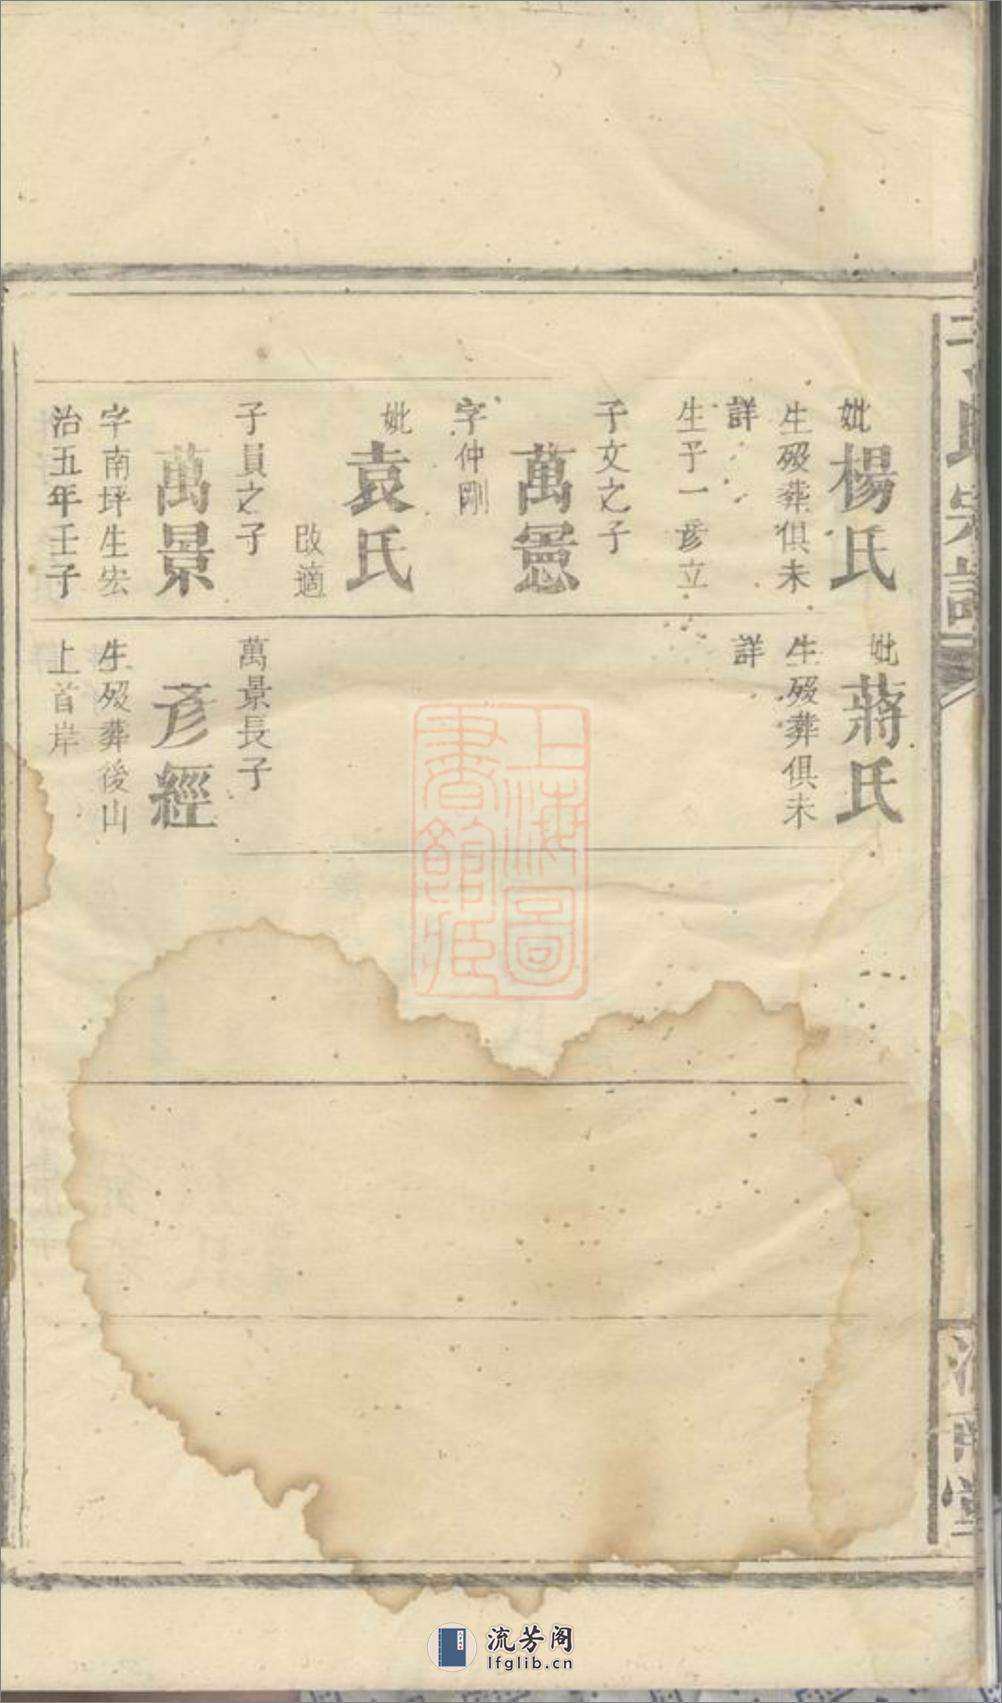 妣楊氏
生歿葬俱未
詳
生子一彥立
子文之子
萬憲
字仲剛
妣袁氏
改適
子員之子
萬景
字南坪生宏
治五年壬子
妣蔣氏
生歿葬俱未
詳
萬景長子
彥經
生歿葬後山
上首岸
上海圖
書館藏
流芳阁
lfglib.cn